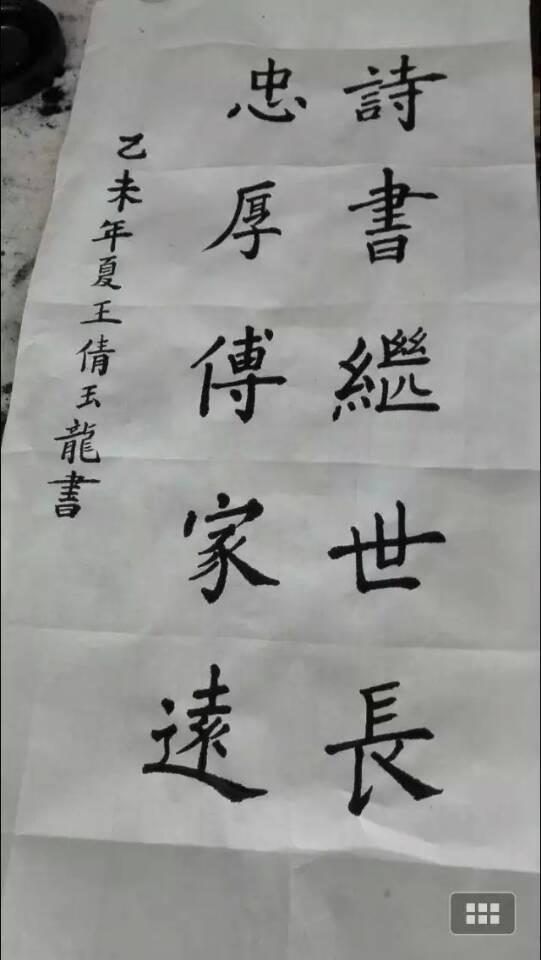 詩書繼世長
忠厚傳家遠
乙未年夏王倩玉龍書